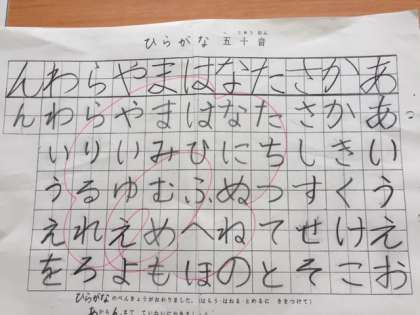 ひらがな 五十音
ああいうえお
かかきくけこ
ささしすせそ
たたちつてと
ななにぬねの
ははひふへほ
ままみむめも
ややいゆえよ
ららりるれろ
わわいうえを
んん
ひらがなのべんきょうがおわりました。(はらう・はねる・とめるに きをつけて)
あからんまで ていねいにかきましょう